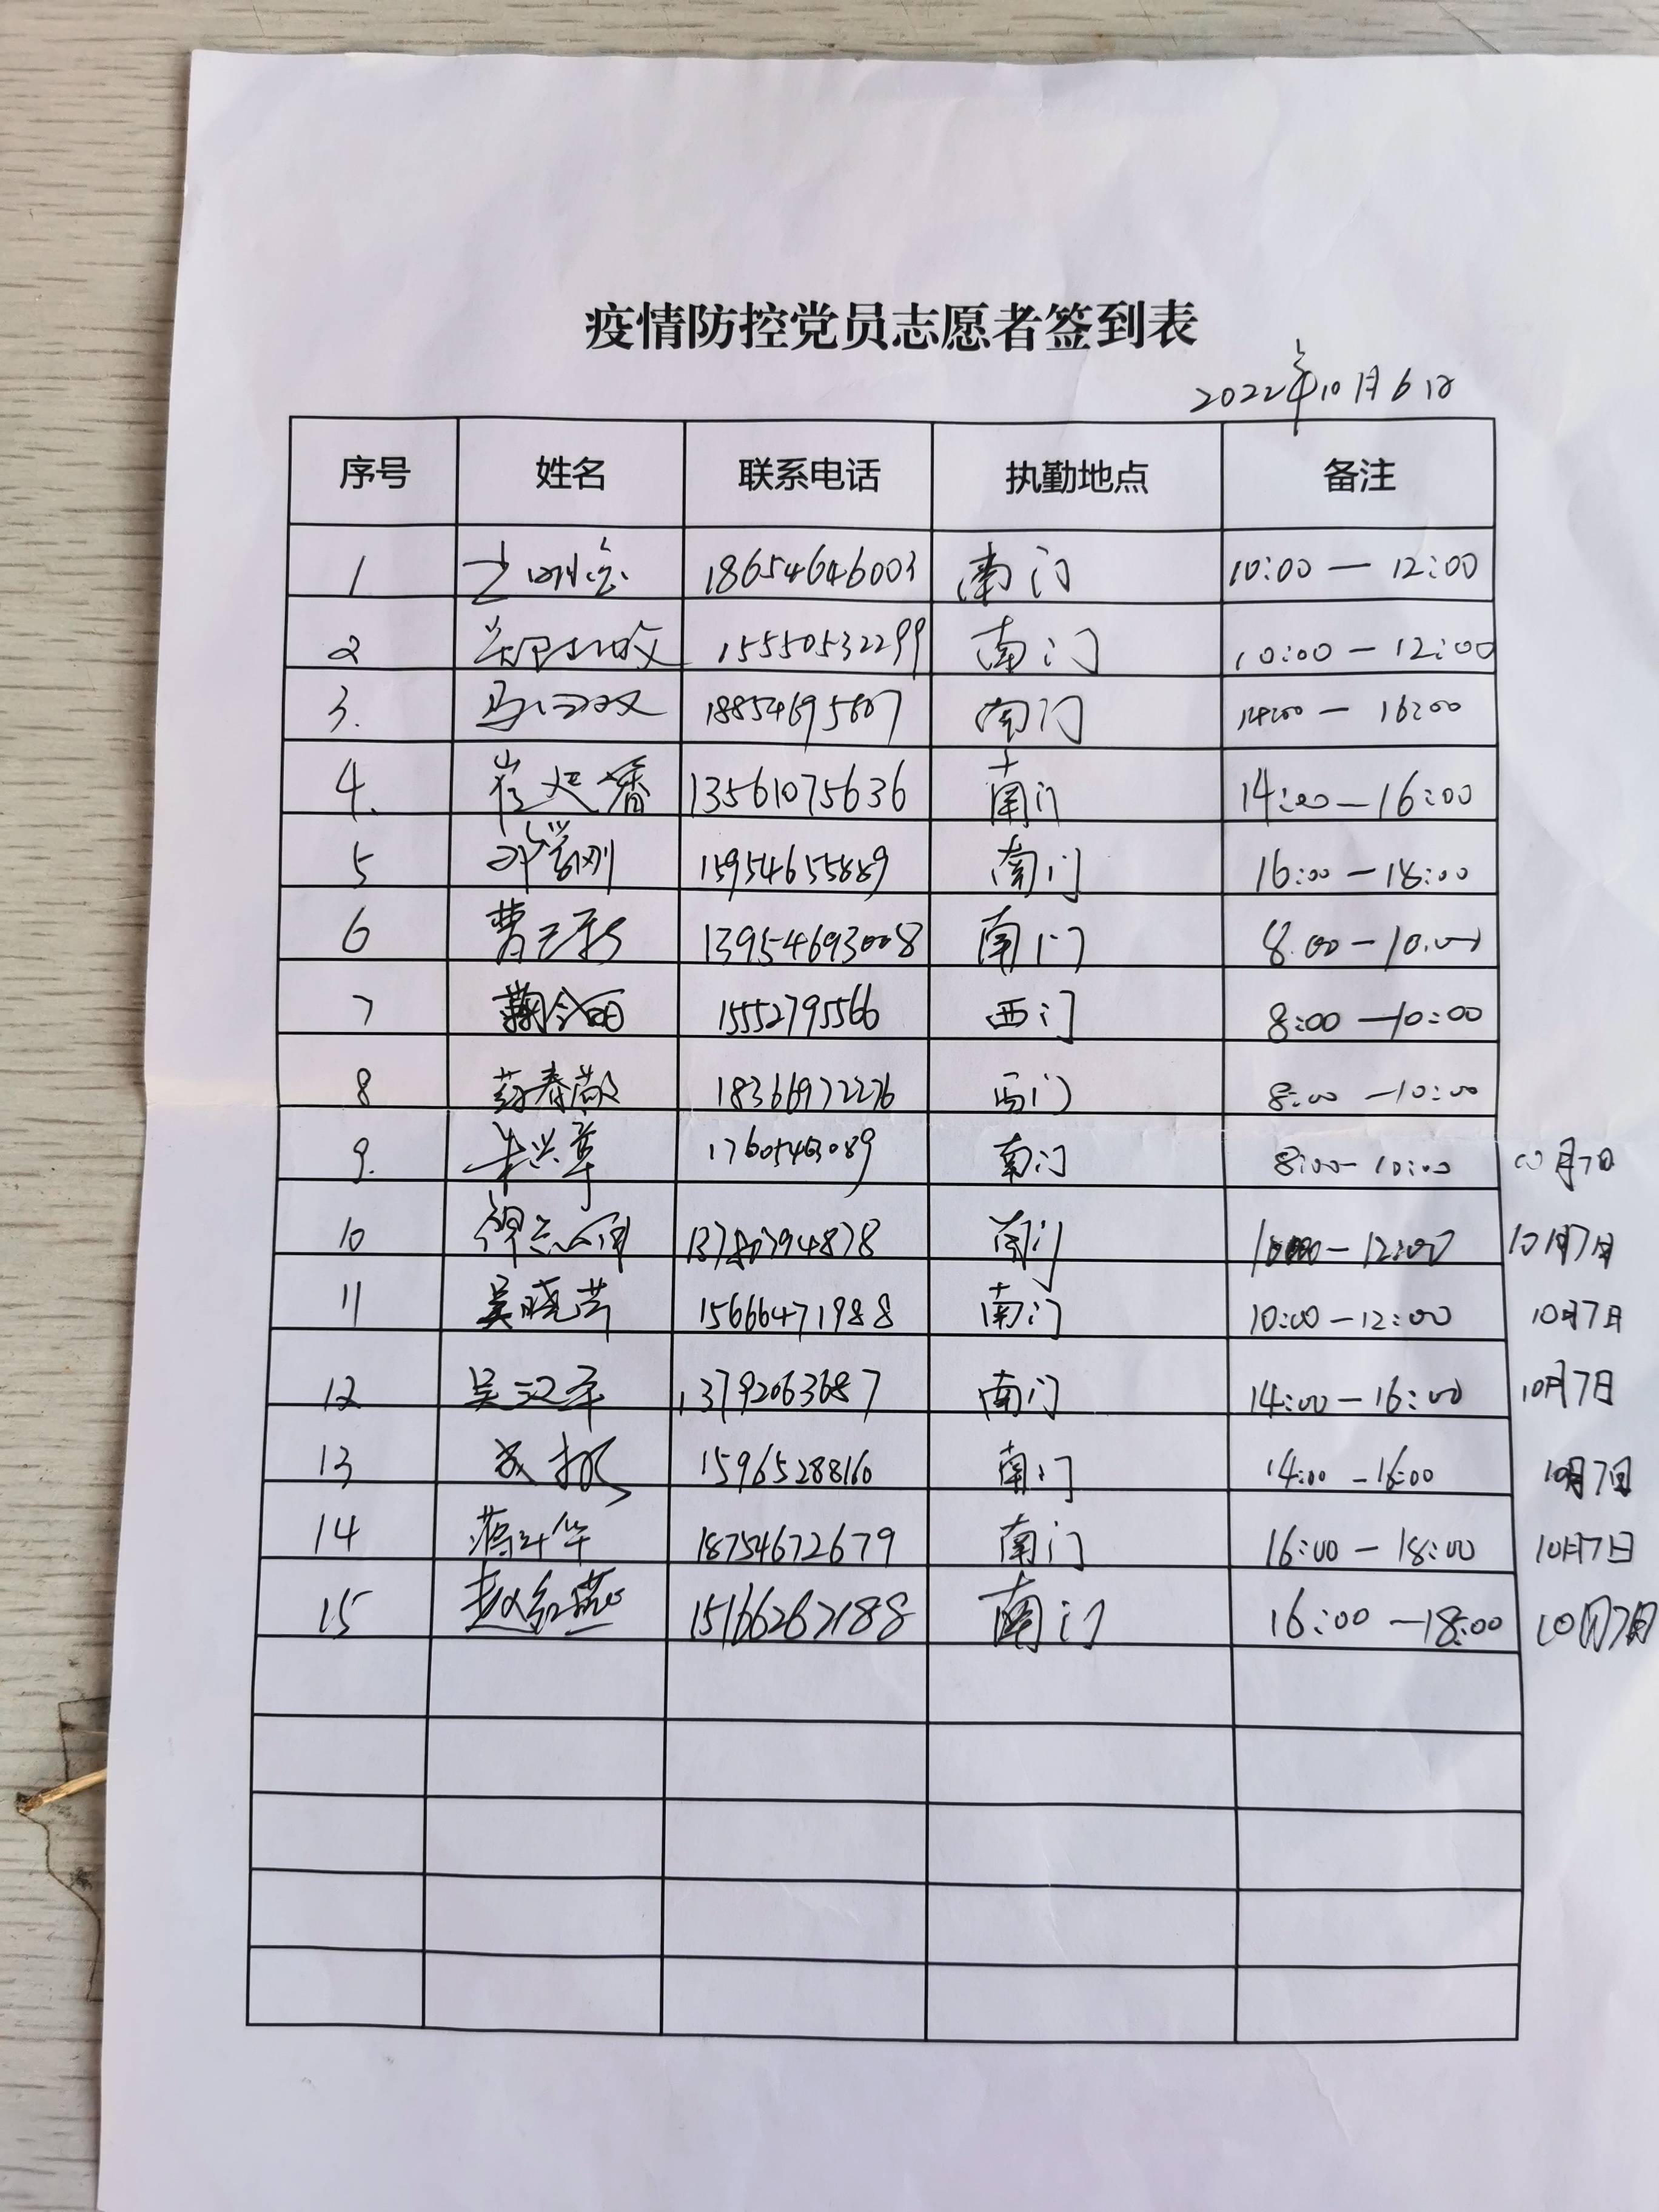 疫情防控党员志愿者签到表
2022年10月6日
序号 姓名 联系电话 执勤地点 备注
1 18654646003 南门 10:00—12:00
2 15550532299 南门 10:00—12:00
3. 马 双 18854695607 南门 14:00—16:00
4. 崔延香 13561075636 南门 14:00—16:00
5 邓学刚 15954655889 南门 16:00—18:00
6 曹 13954693008 南门 8:00—10:00
7 15552795566 西门 8:00—10:00
8 春 18366972276 西门 8:00—10:00
9. 兴军 17605463089 南门 8:00—10:00 10月7日
10 南门 —12:00 10月7日
11 吴晓芸 15666471988 南门 10:00—12:00 10月7日
12 吴汉军 13792063687 南门 14:00—16:00 10月7日
13 15965288160 南门 14:00—16:00 10月7日
14 蒋 华 18754672679 南门 16:00—18:00 10月7日
15 赵红燕 15166267188 南门 16:00—18:00 10月7日